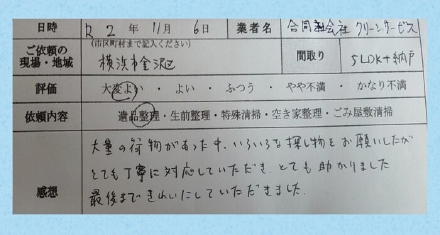 日時 R2年 11月 6日 業者名 合同会社 クリーンサービス
(市区町村まで記入ください)
ご依頼の現場・地域 横浜市金沢区 間取り 5LDK+納戸
評価 大変よい・よい・ふつう・やや不満・かなり不満
依頼内容 遺品整理・生前整理・特殊清掃・空き家整理・ごみ屋敷清掃
感想
大量の荷物があった中、いろいろな探し物をお願いしたが
とても丁寧に対応していただき、とても助かりました
最後まできれいにしていただきました。